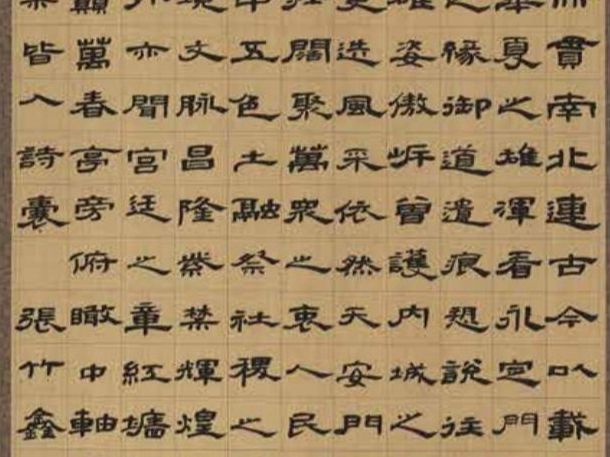 而貫南北連古今以載
夏之雄渾看永定門
之緣御道遺痕想說往
雄姿傲岸曾護內城之
風采依然天安門
闊聚萬眾之衷人民
中五色土融祭社稷之
境文脉昌隆紫禁輝煌
外亦聞宮廷之章紅墻
萬春亭旁俯瞰中軸
皆入詩囊 張竹鑫